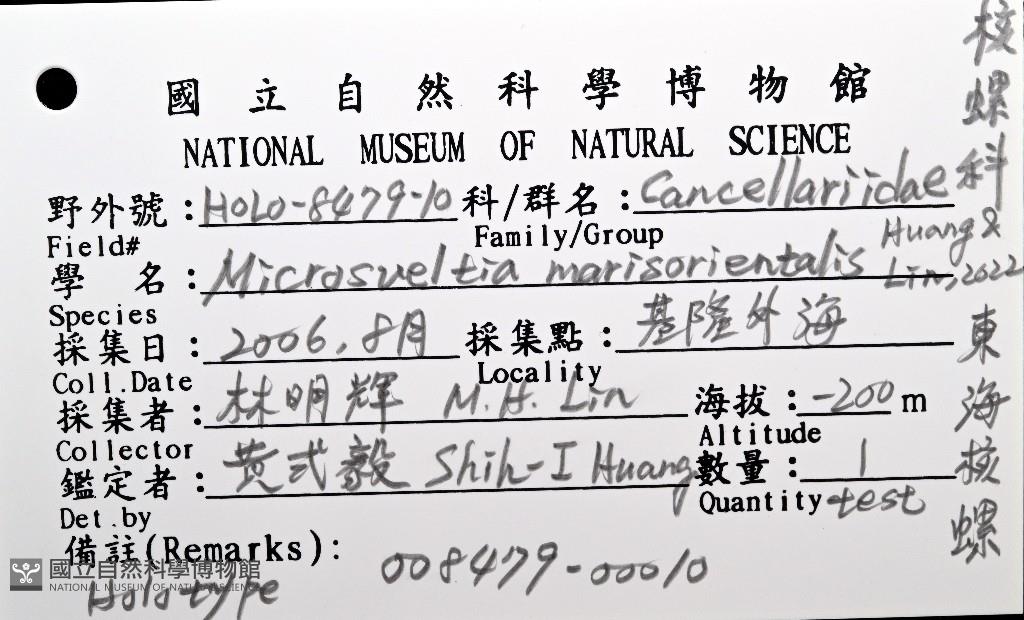 國立自然科學博物館
NATIONAL MUSEUM OF NATURAL SCIENCE
野外號:HOLO-8479-10 科/群名:Cancellariidae 核螺科
Field# Family/Group
學 名:Microsveltia marisorientalis Huang & Lin, 2022
Species
採集日:2006, 8月 採集點:基隆外海
Coll.Date Locality
採集者:林明輝 M.H. Lin 海拔:-200 m
Collector Altitude
鑑定者:黃式毅 Shih-I Huang 數量:1
Det.by Quantity test
備註(Remarks):
Holotype 008479-00010
東海核螺
國立自然科學博物館
NATIONAL MUSEUM OF NATURAL SCIENCE